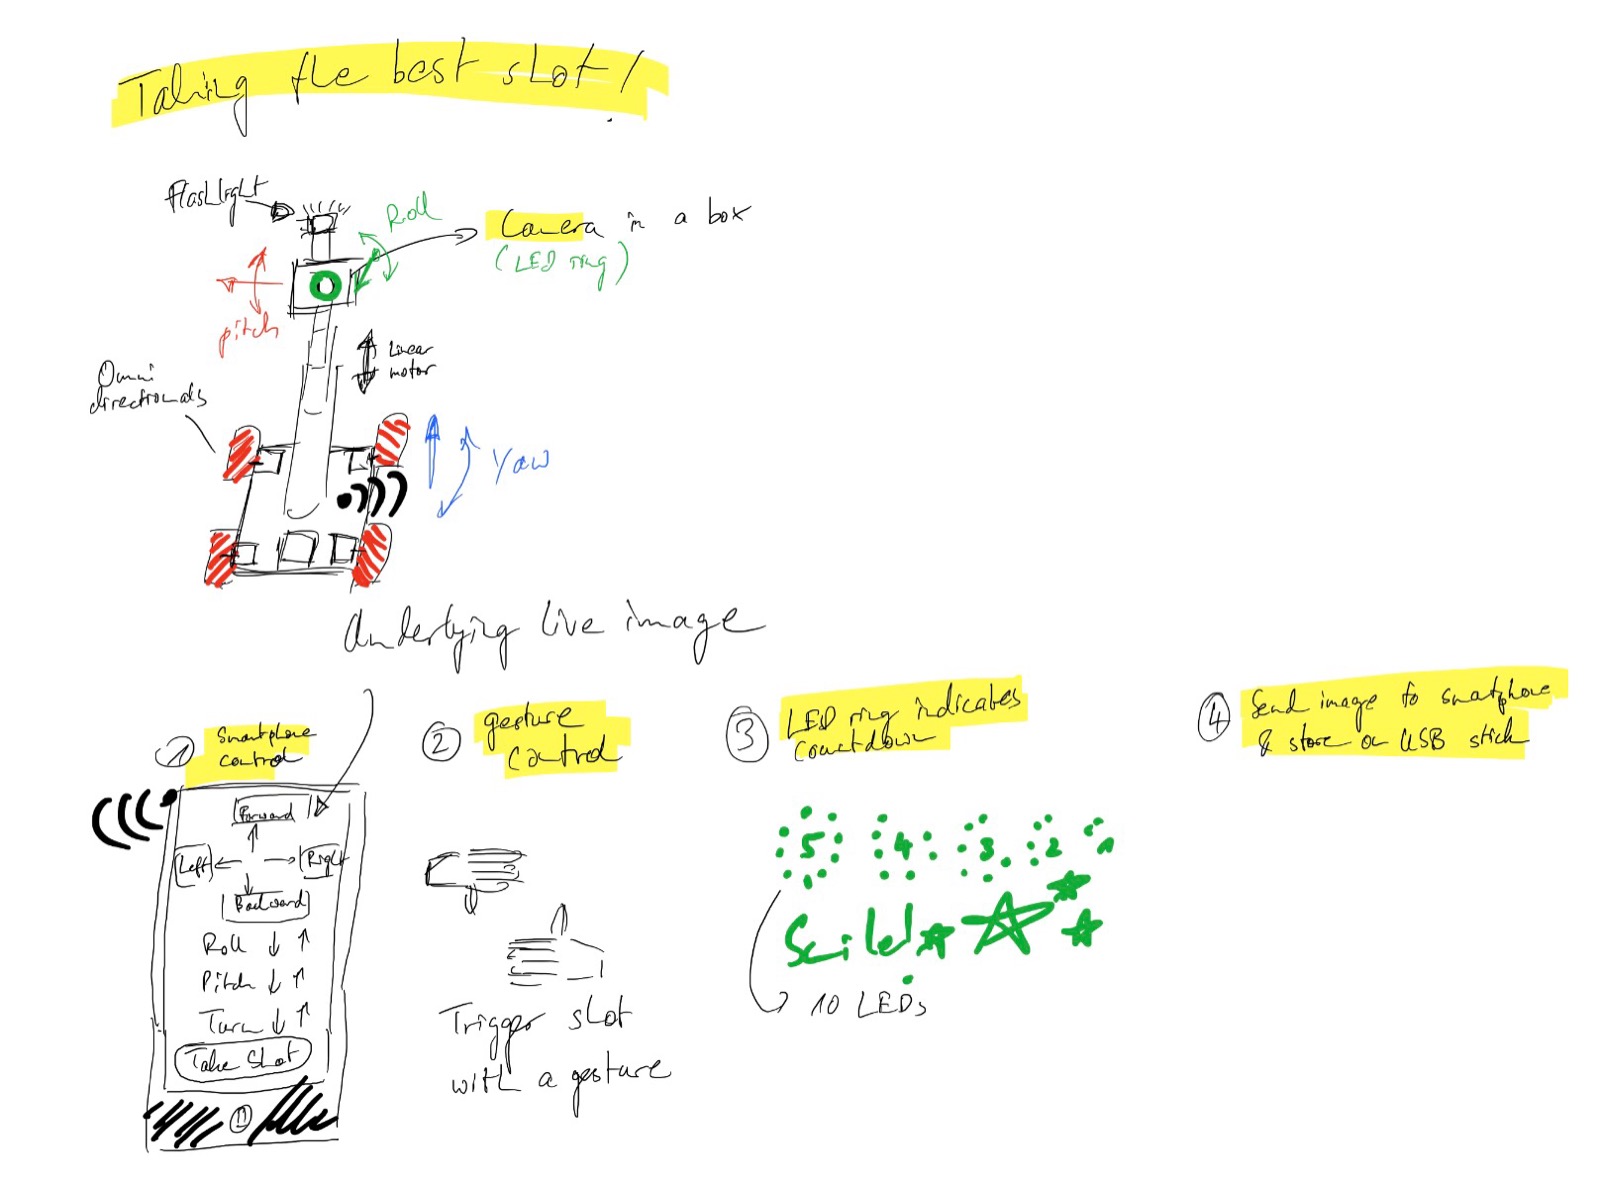 Taking the best shot!
Flashlight
Roll
Camera in a box
(LED ring)
pitch
Linear
motor
Omni
directionals
Yaw
Underlying live image
1 Smartphone
control
Forward
Left
Right
Backward
Roll ↓ ↑
Pitch ↓ ↑
Turn ↓ ↑
Take Shot
2 gesture
control
Trigger shot
with a gesture
3 LED ring indicates
countdown
5 4 3 2 1
Smile!
10 LEDs
4 Send image to smartphone
& store on USB stick